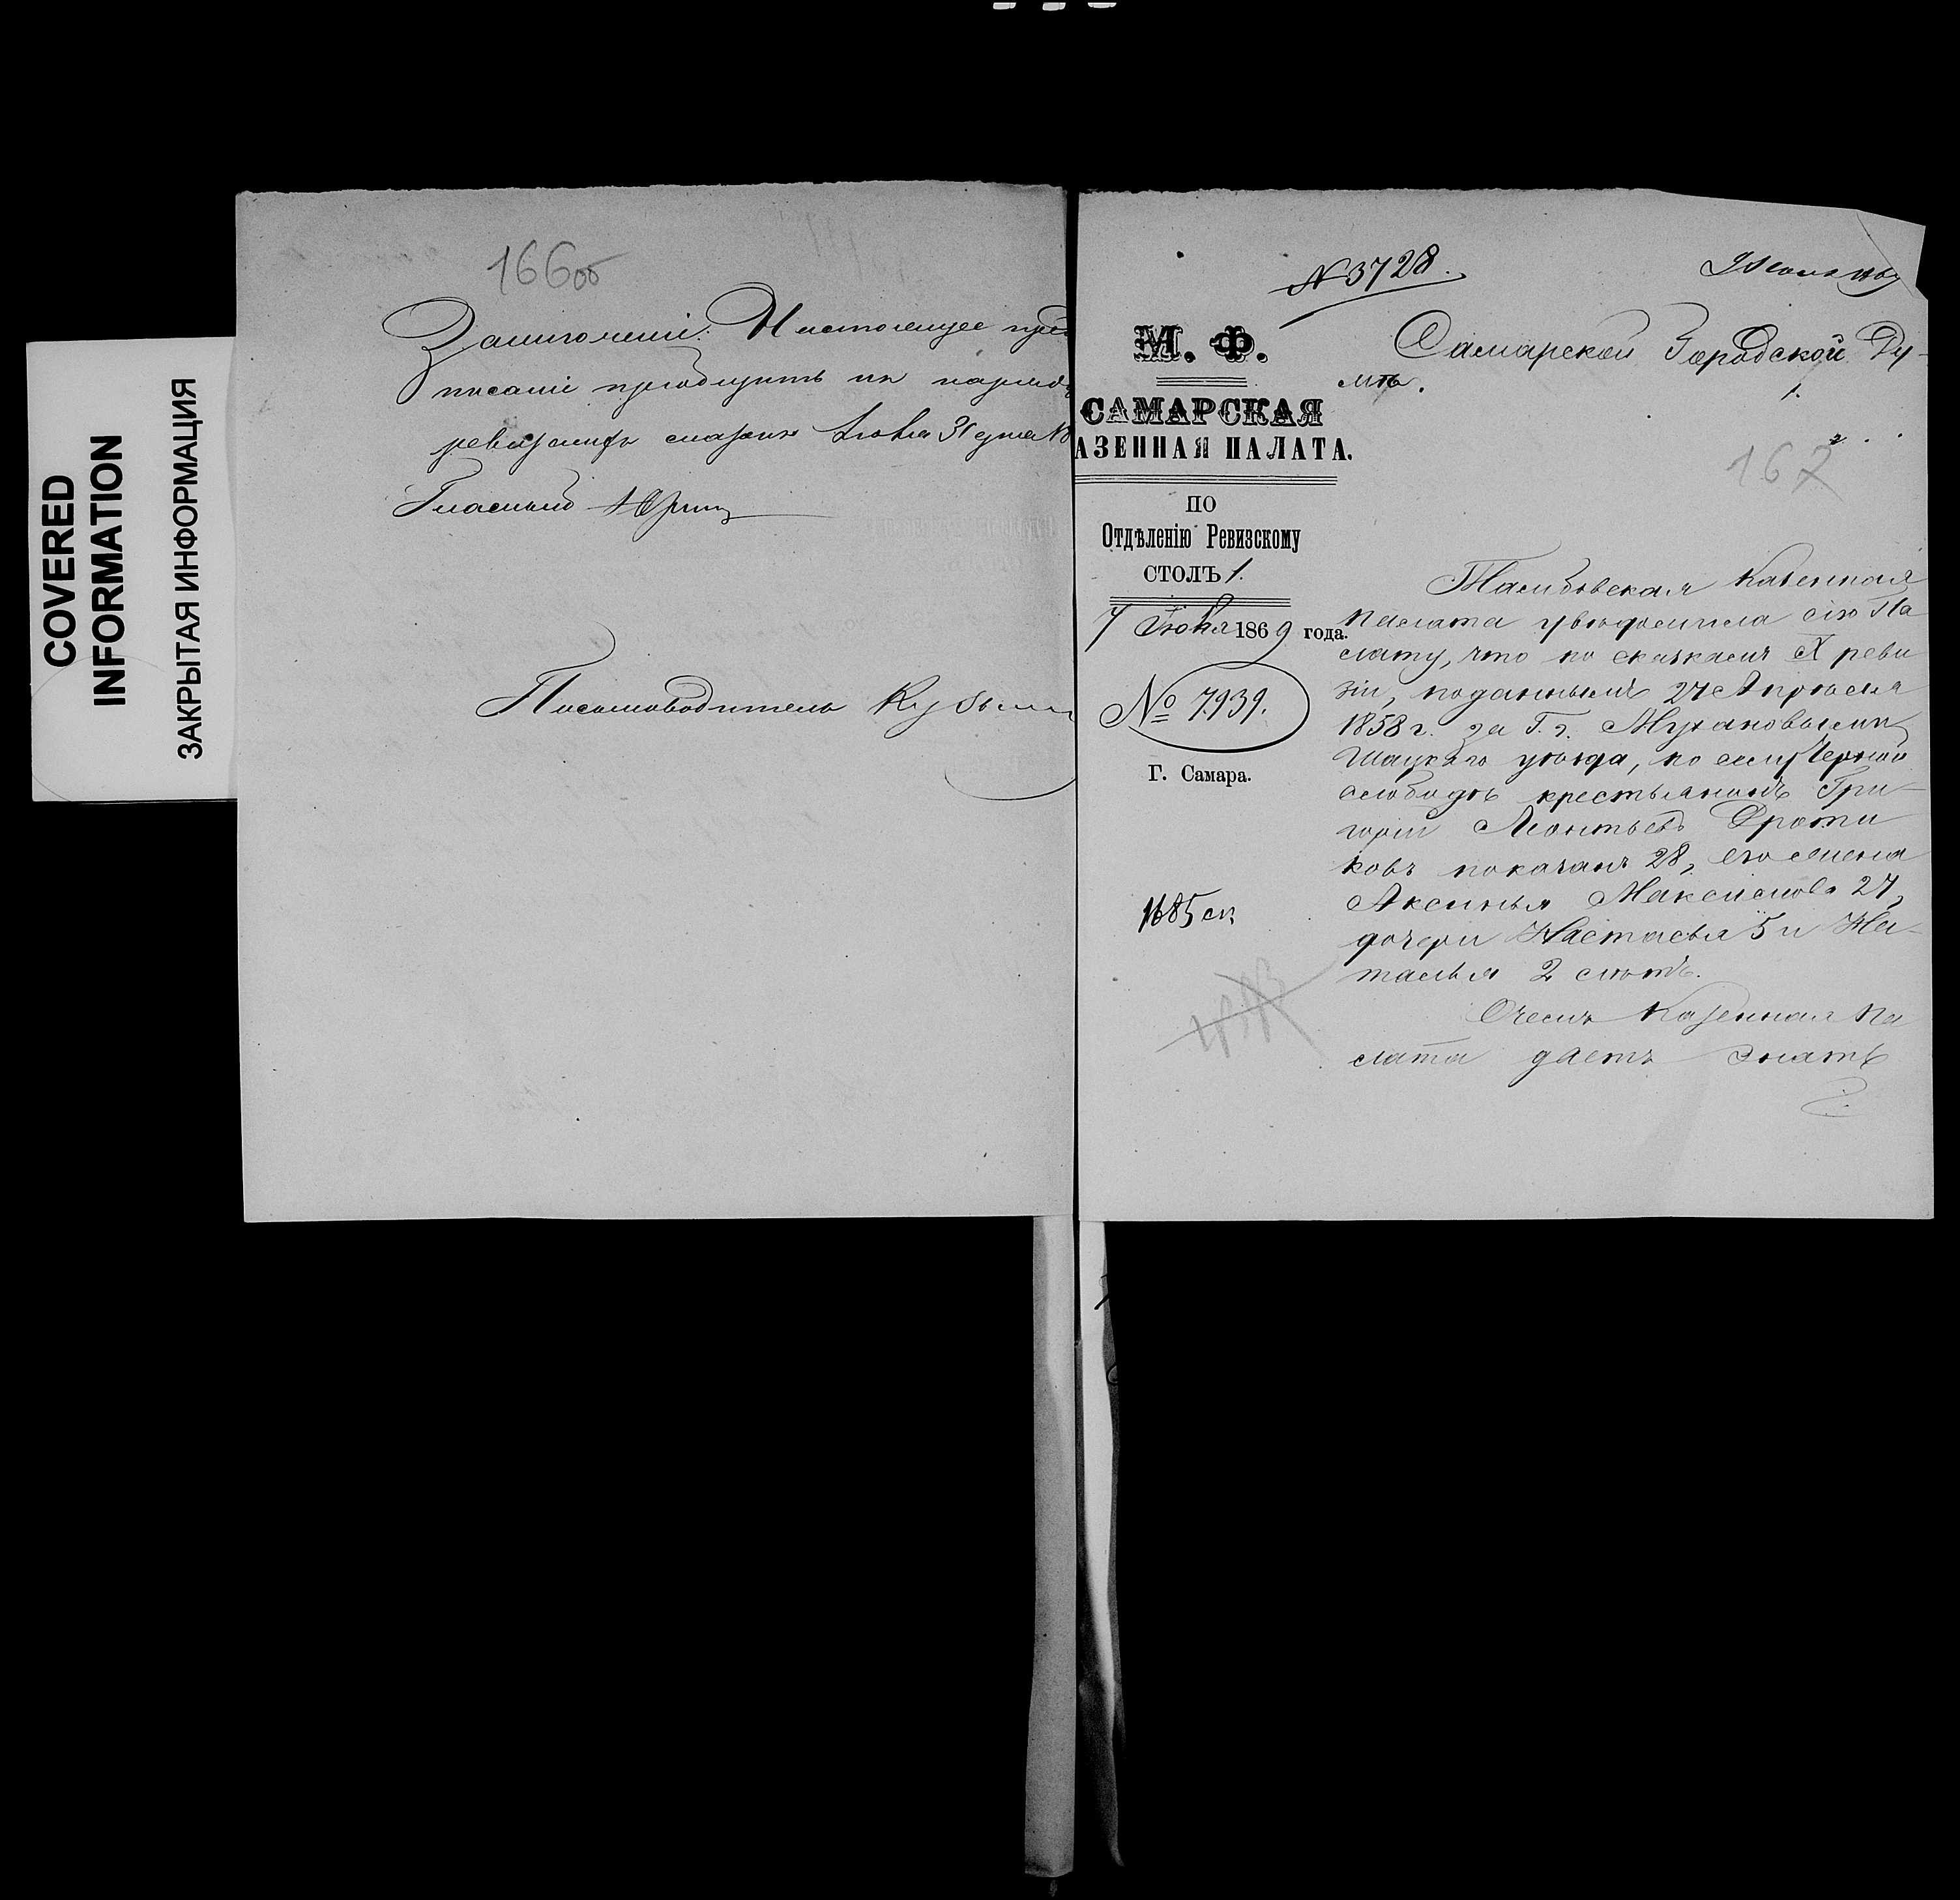 COVERED
INFORMATION
ЗАКРЫТАЯ ИНФОРМАЦИЯ
166об
Заключеніе: Настоящее пред
писаніе приобщить къ наряду
ревизскихъ сказокъ Іюня 31 дня 18
Гласный
Письмоводитель
№ 3728.
Самарской Городской Ду-
мѣ.
1.
167
М. Ф.
САМАРСКАЯ
АЗЕННАЯ ПАЛАТА.
ПО
Отдѣленію Ревизскому
СТОЛЪ 1.
7 Іюня 1869 года.
№ 7939.
Г. Самара.
1685 ск
Тамбовская Казенная
Палата увѣдомила сію Па
лату, что по сказкамъ X реви
зіи, поданнымъ 27 Апрѣля
1858 г. за Г. г. Мухановыми
Шацкаго уѣзда, по селу Черной
слободѣ крестьянинъ Гри-
горій Леонтьевъ Фроти
ковъ показанъ 28, его жена
Аксинья Максимова 27,
дочери Настасья 5 и На-
талья 2 лѣтъ.
О чемъ Казенная Па
лата даетъ знать